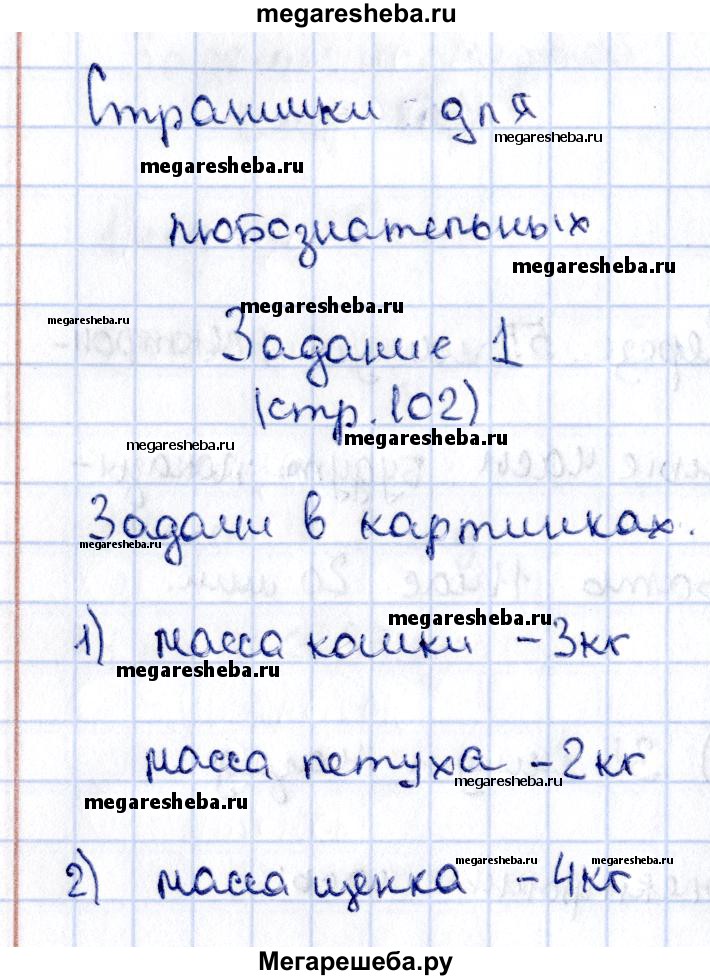 megaresheba.ru
Странички для
megaresheba.ru
megaresheba.ru
любознательных
megaresheba.ru
megaresheba.ru
megaresheba.ru
Задание 1
(стр. 102)
megaresheba.ru
megaresheba.ru
Задачи в картинках.
megaresheba.ru
megaresheba.ru
1) масса кошки - 3 кг
megaresheba.ru
масса петуха - 2 кг
megaresheba.ru
megaresheba.ru
megaresheba.ru megaresheba.ru
2) масса щенка - 4 кг
Мегарешеба.ру